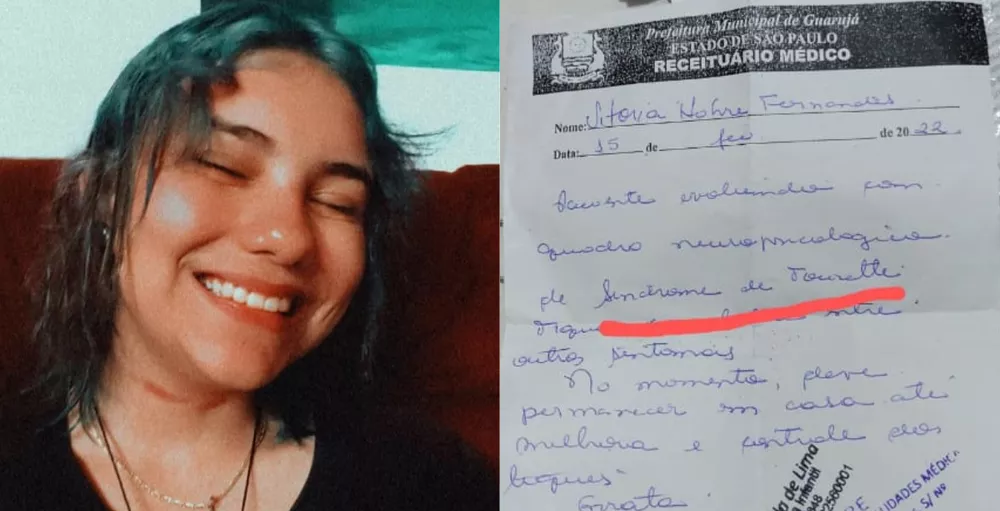 Prefeitura Municipal de Guarujá
ESTADO DE SÃO PAULO
RECEITUÁRIO MÉDICO
Nome: Vitoria Nobre Fernandes
Data: 15 de fev de 2022.
Paciente evoluindo com
quadro neuropsicologico
de Síndrome de Tourette
entre
outros sintomas
No momento, deve
permanecer em casa até
melhora e controle dos
tiques
Grata
de Lima
Infantil
948
2560001
IDADES MÉDIC
S/ Nº